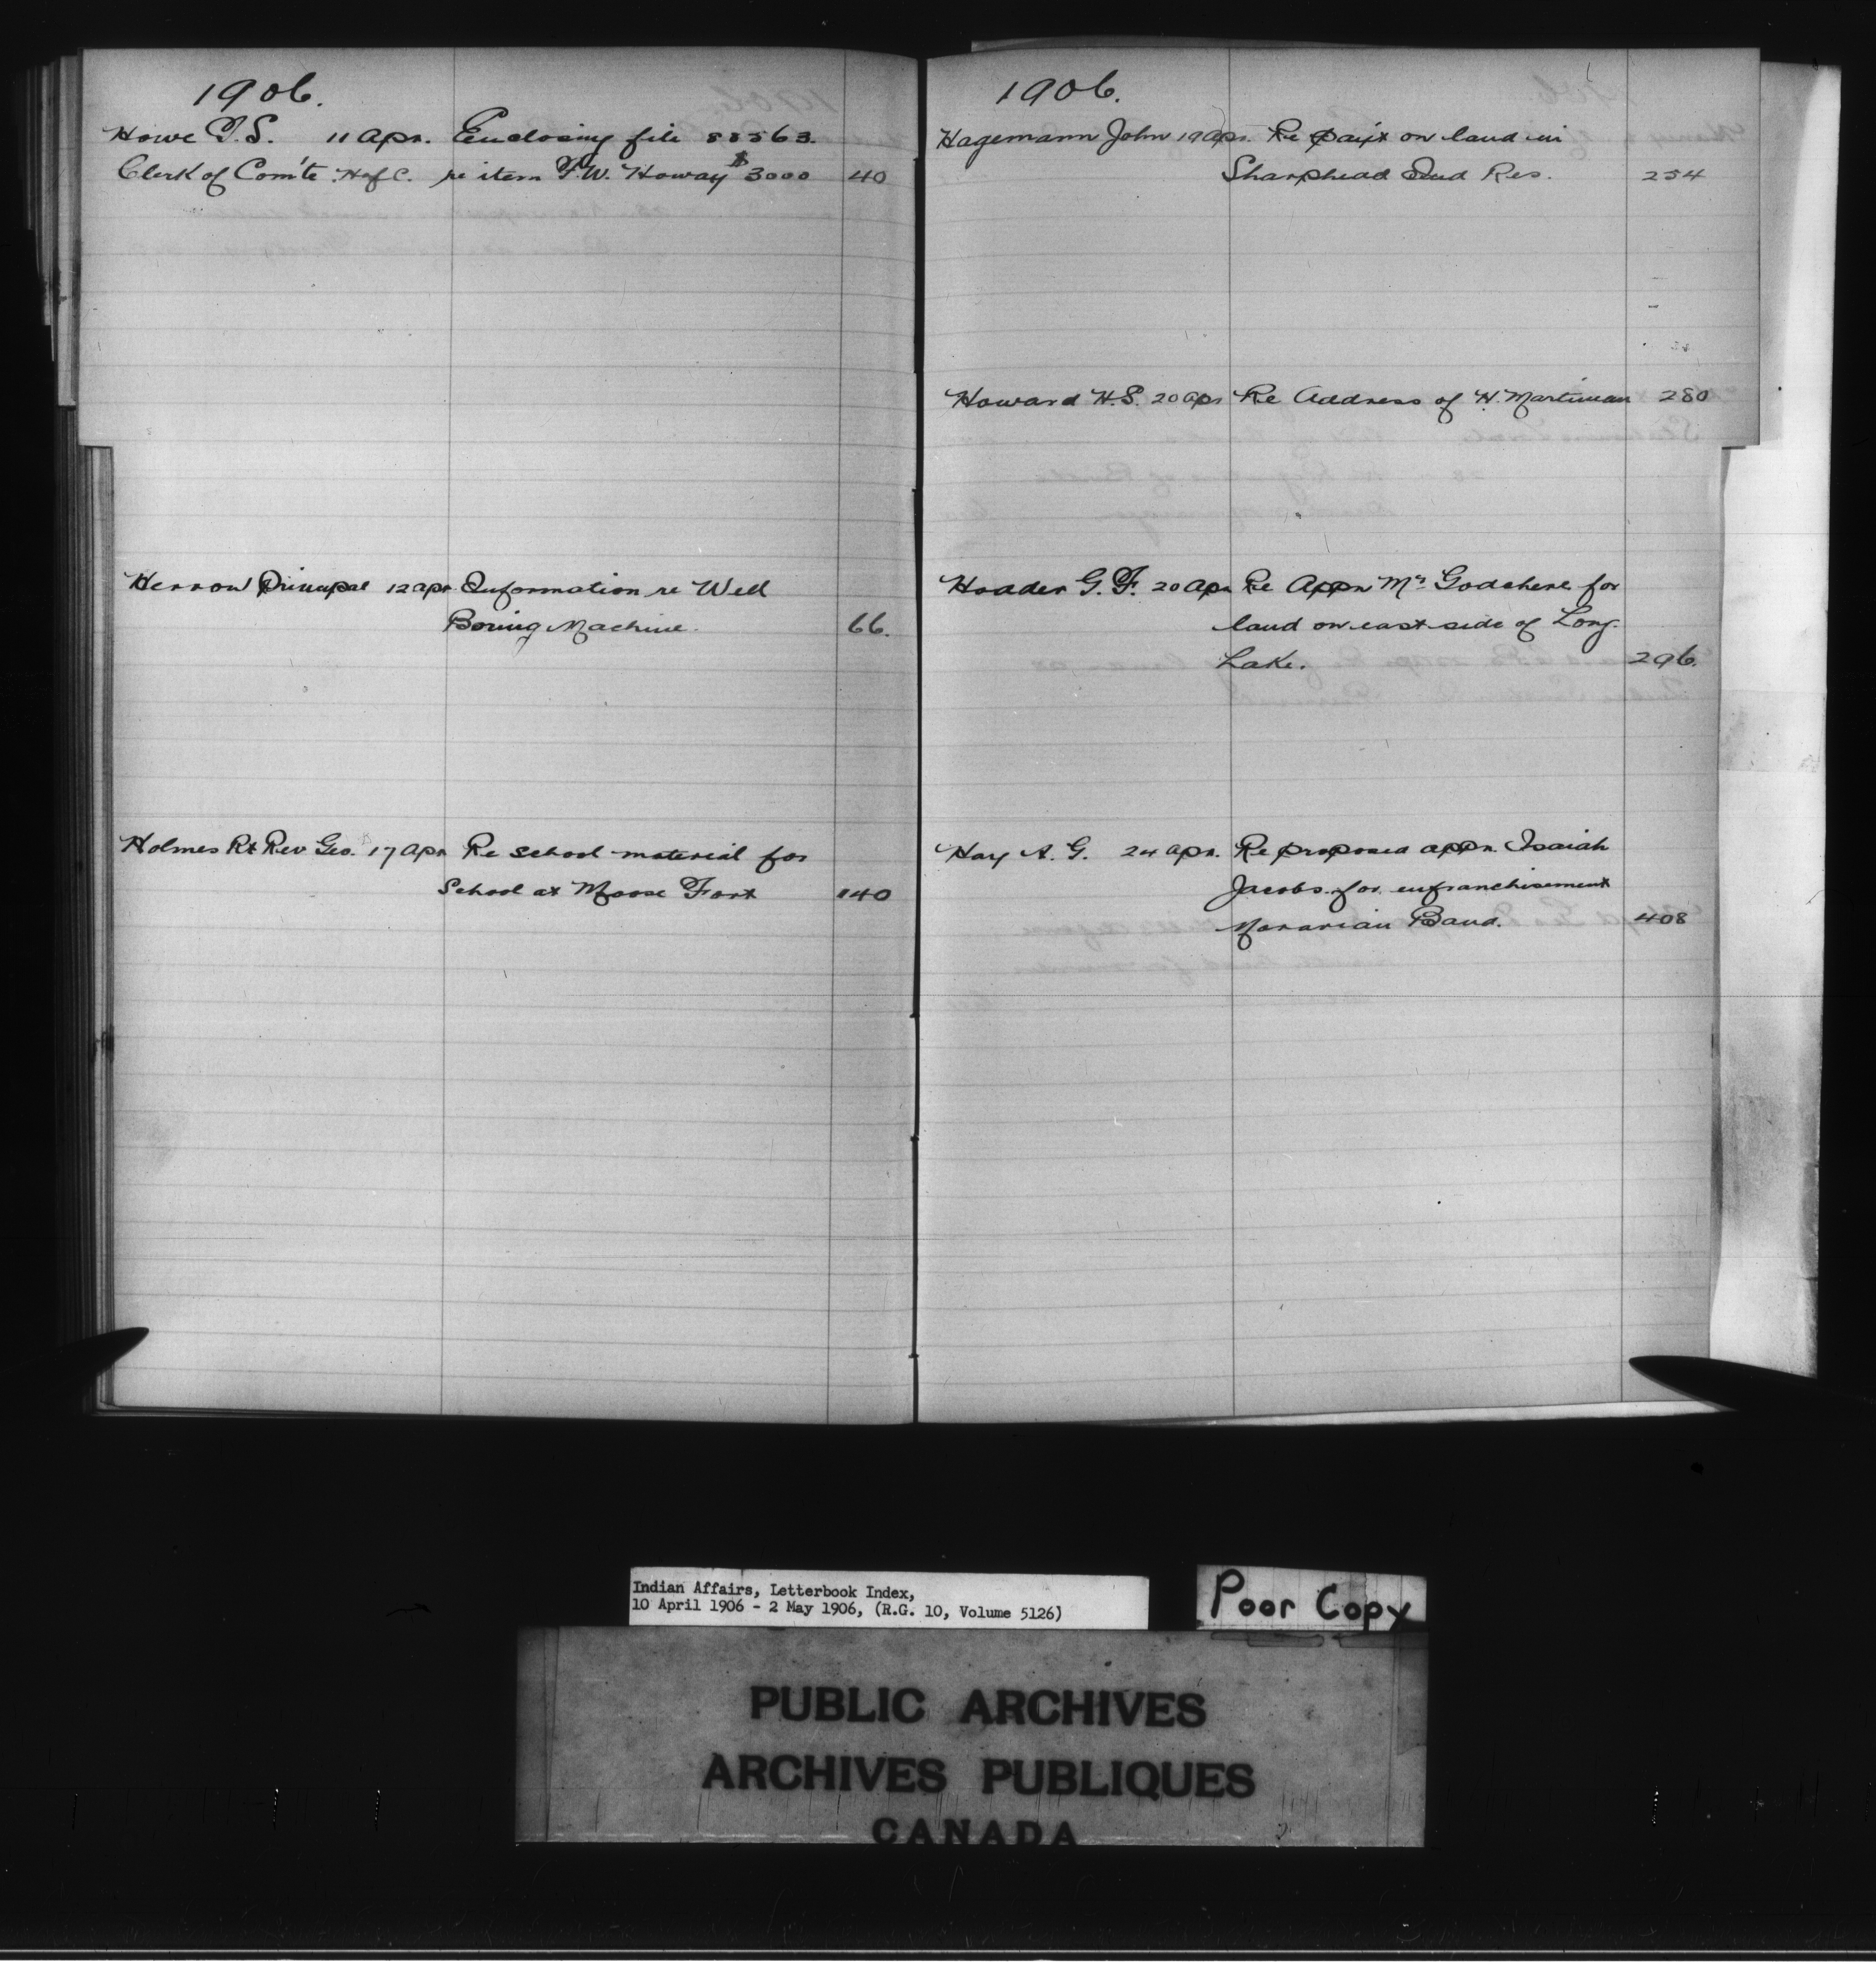 1906.
Howe T.S. 11 Apr. Enclosing file 88563.
Clerk of Com'te H of C. re item F.W. Howay $3000 40
Herron Principal 12 apr Information re Well
Boring Machine. 66.
Holmes Rt Rev Geo. 17 Apr Re school material for
School at Moose Fort 140
1906.
Hagemann John 19 Apr. Re paift on land in
Sharphead Ind Res. 254
Howard H.S. 20 Apr Re Address of H. Martiman 280
Hoader G.F. 20 Apr Re Appn Mr Godchere for
land on east side of Long
Lake. 296.
Hay A.G. 24 Apr. Re proposed appn. Isaiah
Jacobs for enfranchisement
Moravian Band. 408
Indian Affairs, Letterbook Index,
10 April 1906 - 2 May 1906, (R.G. 10, Volume 5126)
Poor Copy
PUBLIC ARCHIVES
ARCHIVES PUBLIQUES
CANADA